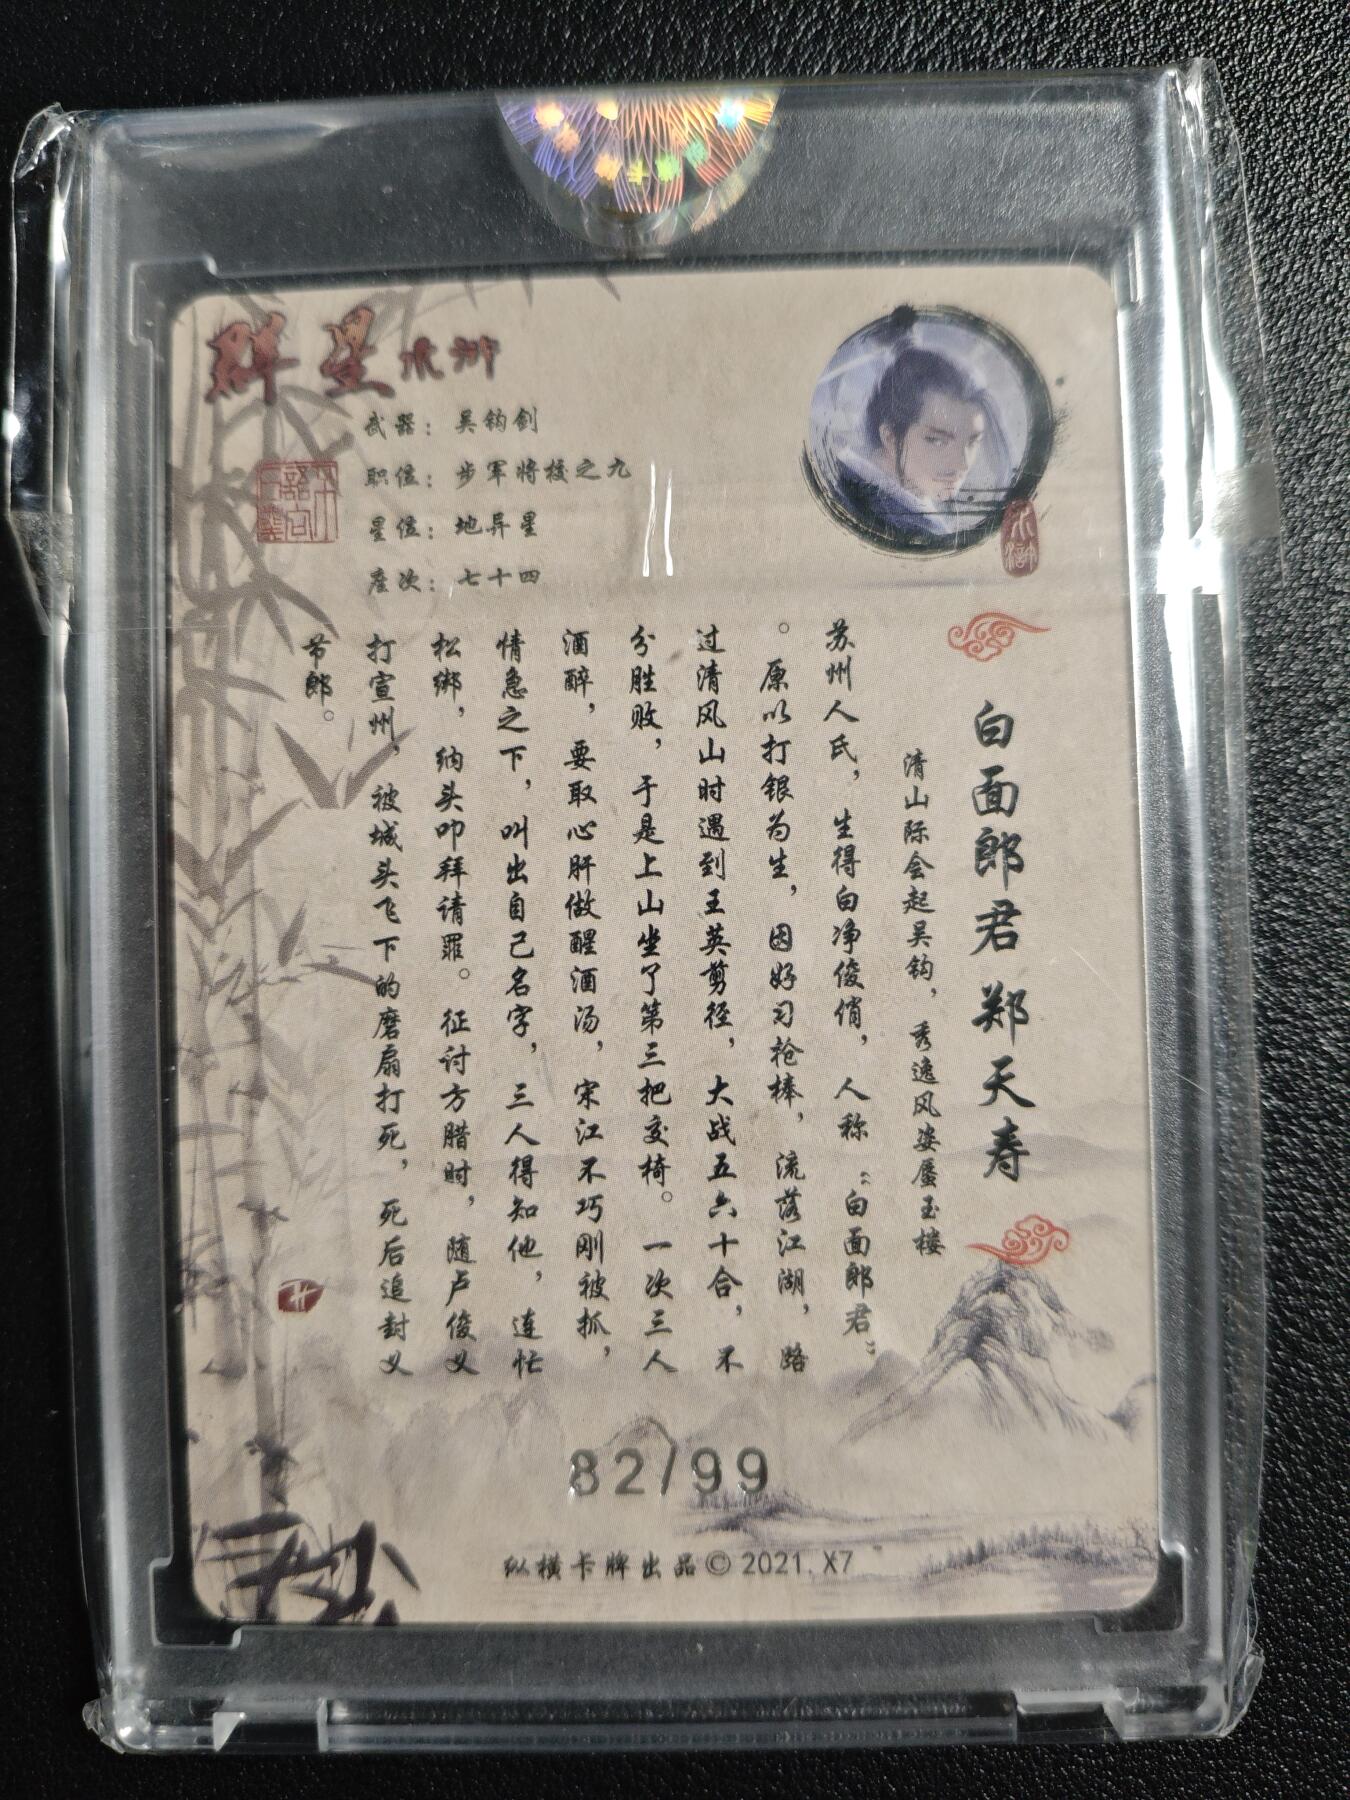 群星水浒
武器：吴钩剑
职位：步军将校之九
星位：地异星
座次：七十四
水浒
白面郎君 郑天寿
清山际会起吴钩，秀逸风姿蜃玉楼
苏州人氏，生得白净俊俏，人称“白面郎君”
。原以打银为生，因好习枪棒，流落江湖，路
过清风山时遇到王英剪径，大战五六十合，不
分胜败，于是上山坐了第三把交椅。一次三人
酒醉，要取心肝做醒酒汤，宋江不巧刚被抓，
情急之下，叫出自己名字，三人得知他，连忙
松绑，纳头叩拜请罪。征讨方腊时，随卢俊义
打宣州，被城头飞下的磨扇打死，死后追封义
节郎。
82/99
纵横卡牌出品© 2021. X7